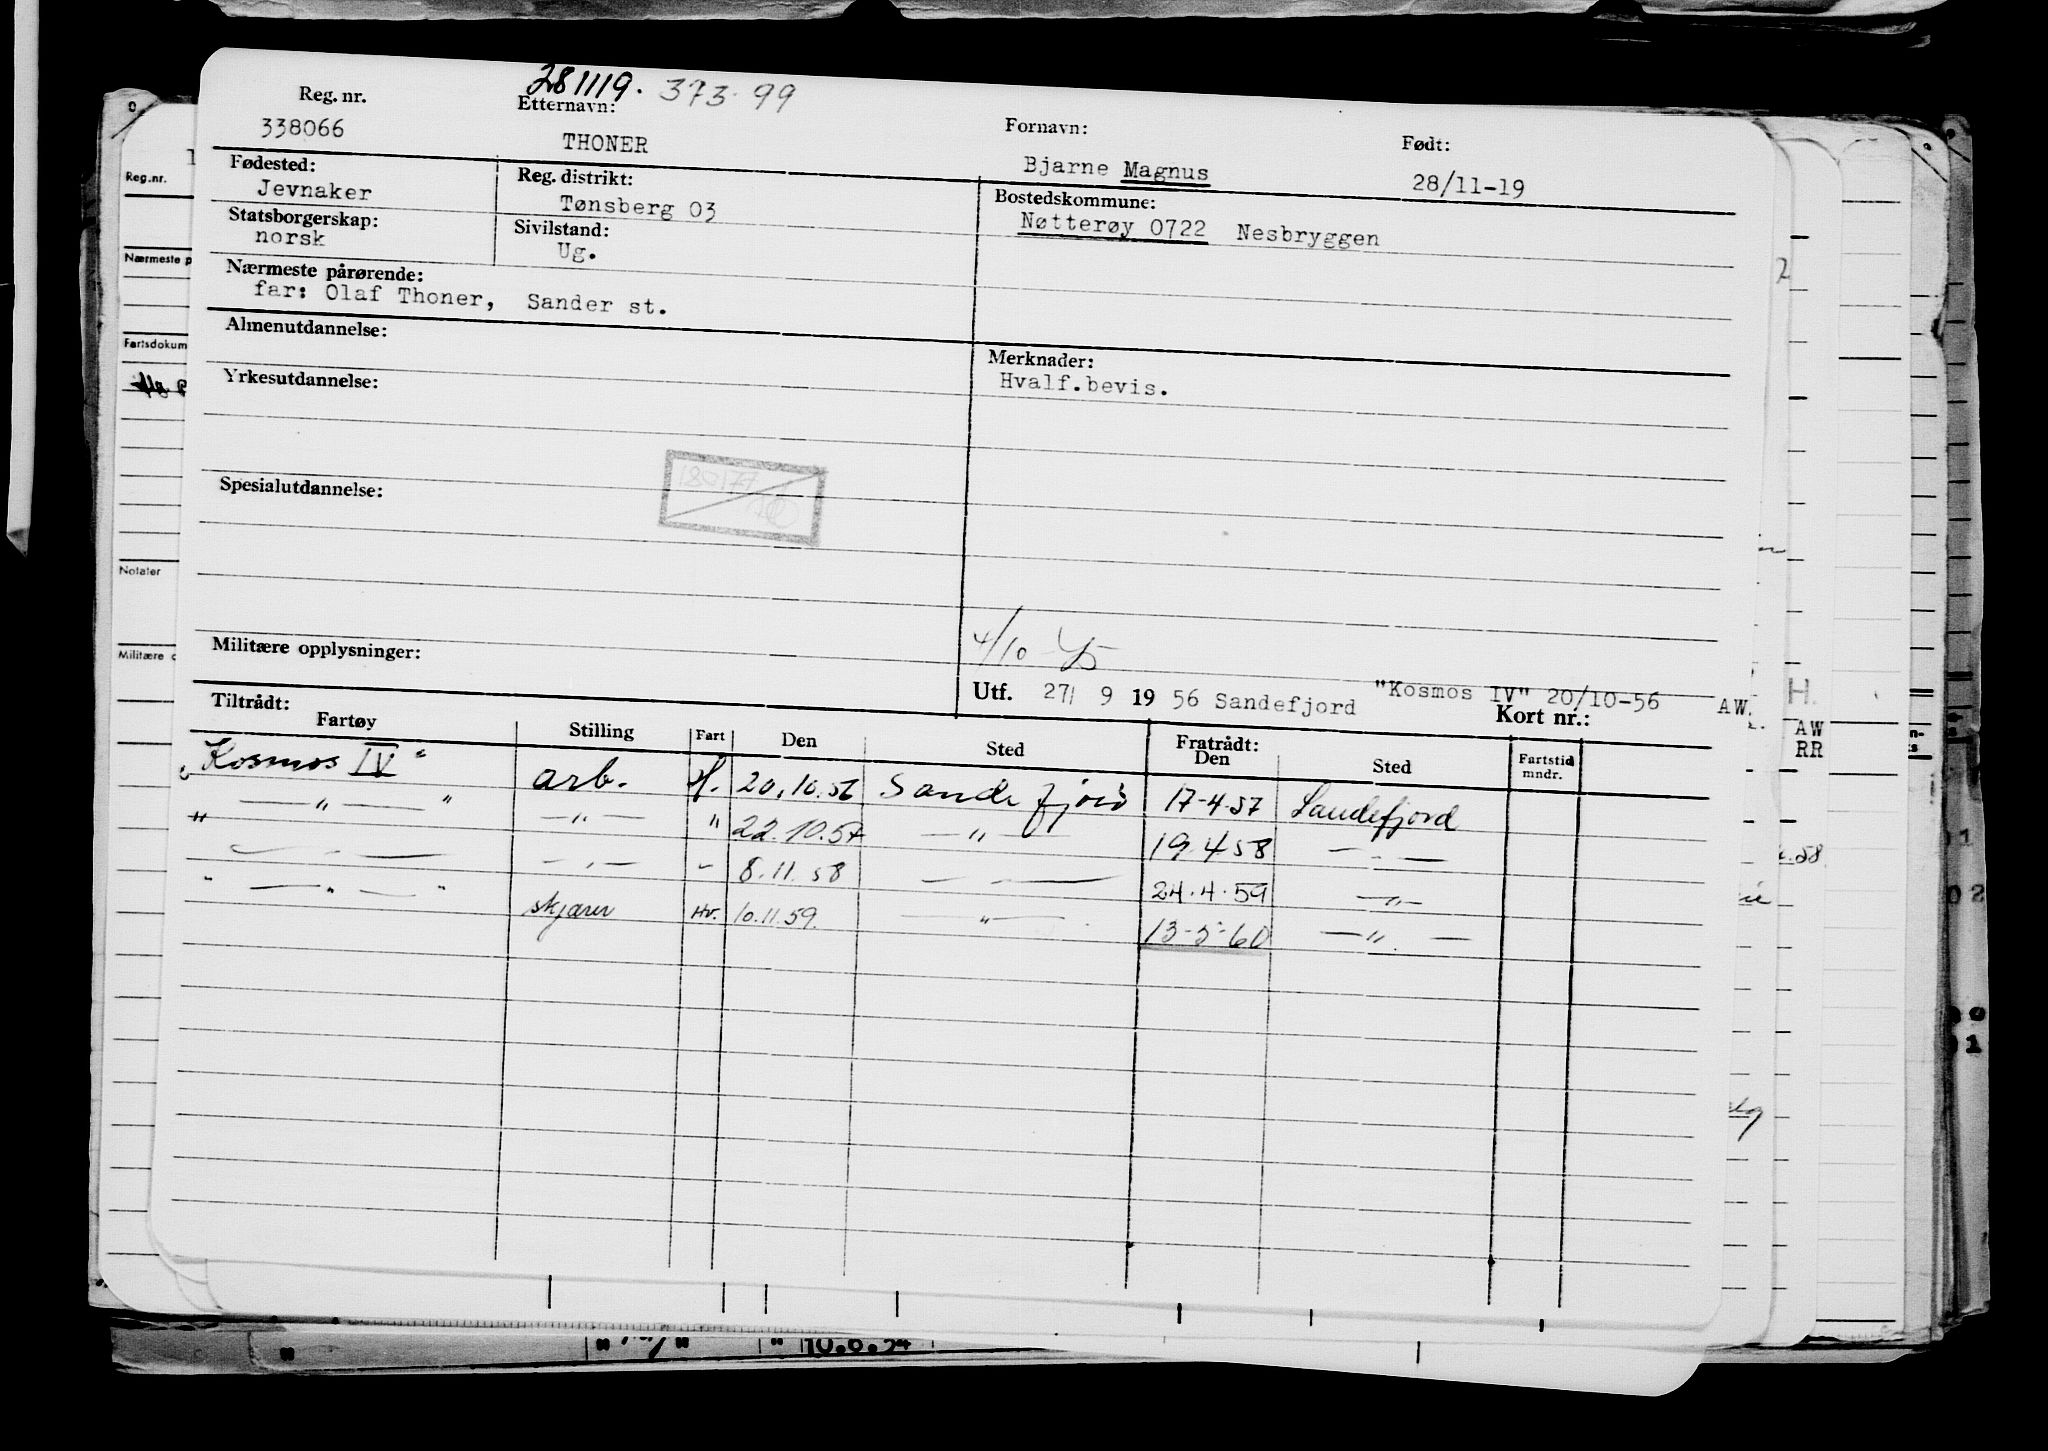 281119. 373.99
Reg. nr. Etternavn: Fornavn: Født:
338066 THONER Bjarne Magnus 28/11-19
Fødested: Reg. distrikt: Bostedskommune:
Jevnaker Tønsberg 03 Nøtterøy 0722 Nesbryggen
Statsborgerskap: Sivilstand:
norsk Ug.
Nærmeste pårørende:
far: Olaf Thoner, Sander st.
Almenutdannelse: Merknader:
Yrkesutdannelse: Hvalf.bevis.
180177
Spesialutdannelse:
Militære opplysninger: 4/10
Utf. 27/ 9 19 56 Sandefjord "Kosmos IV" 20/10-56 AW.
Tiltrådt: Kort nr.:
Fartøy Stilling Fart Den Sted Fratrådt: Den Sted Fartstid mndr.
"Kosmos IV" arb. H. 20.10.56 Sandefjord 17-4-57 Sandefjord
" — " — " — " — " 22.10.57 — " — 19.4.58 — " —
— " — — " — " 8.11.58 — " — 24.4.59 — " —
" — " — " skjærer Hv. 10.11.59. — " — 13-5-60 — " —
Reg.nr.
Nærmeste p
Fartsdokum
Notater
Militære o
H.
AW
RR
.58
02
10.6.54